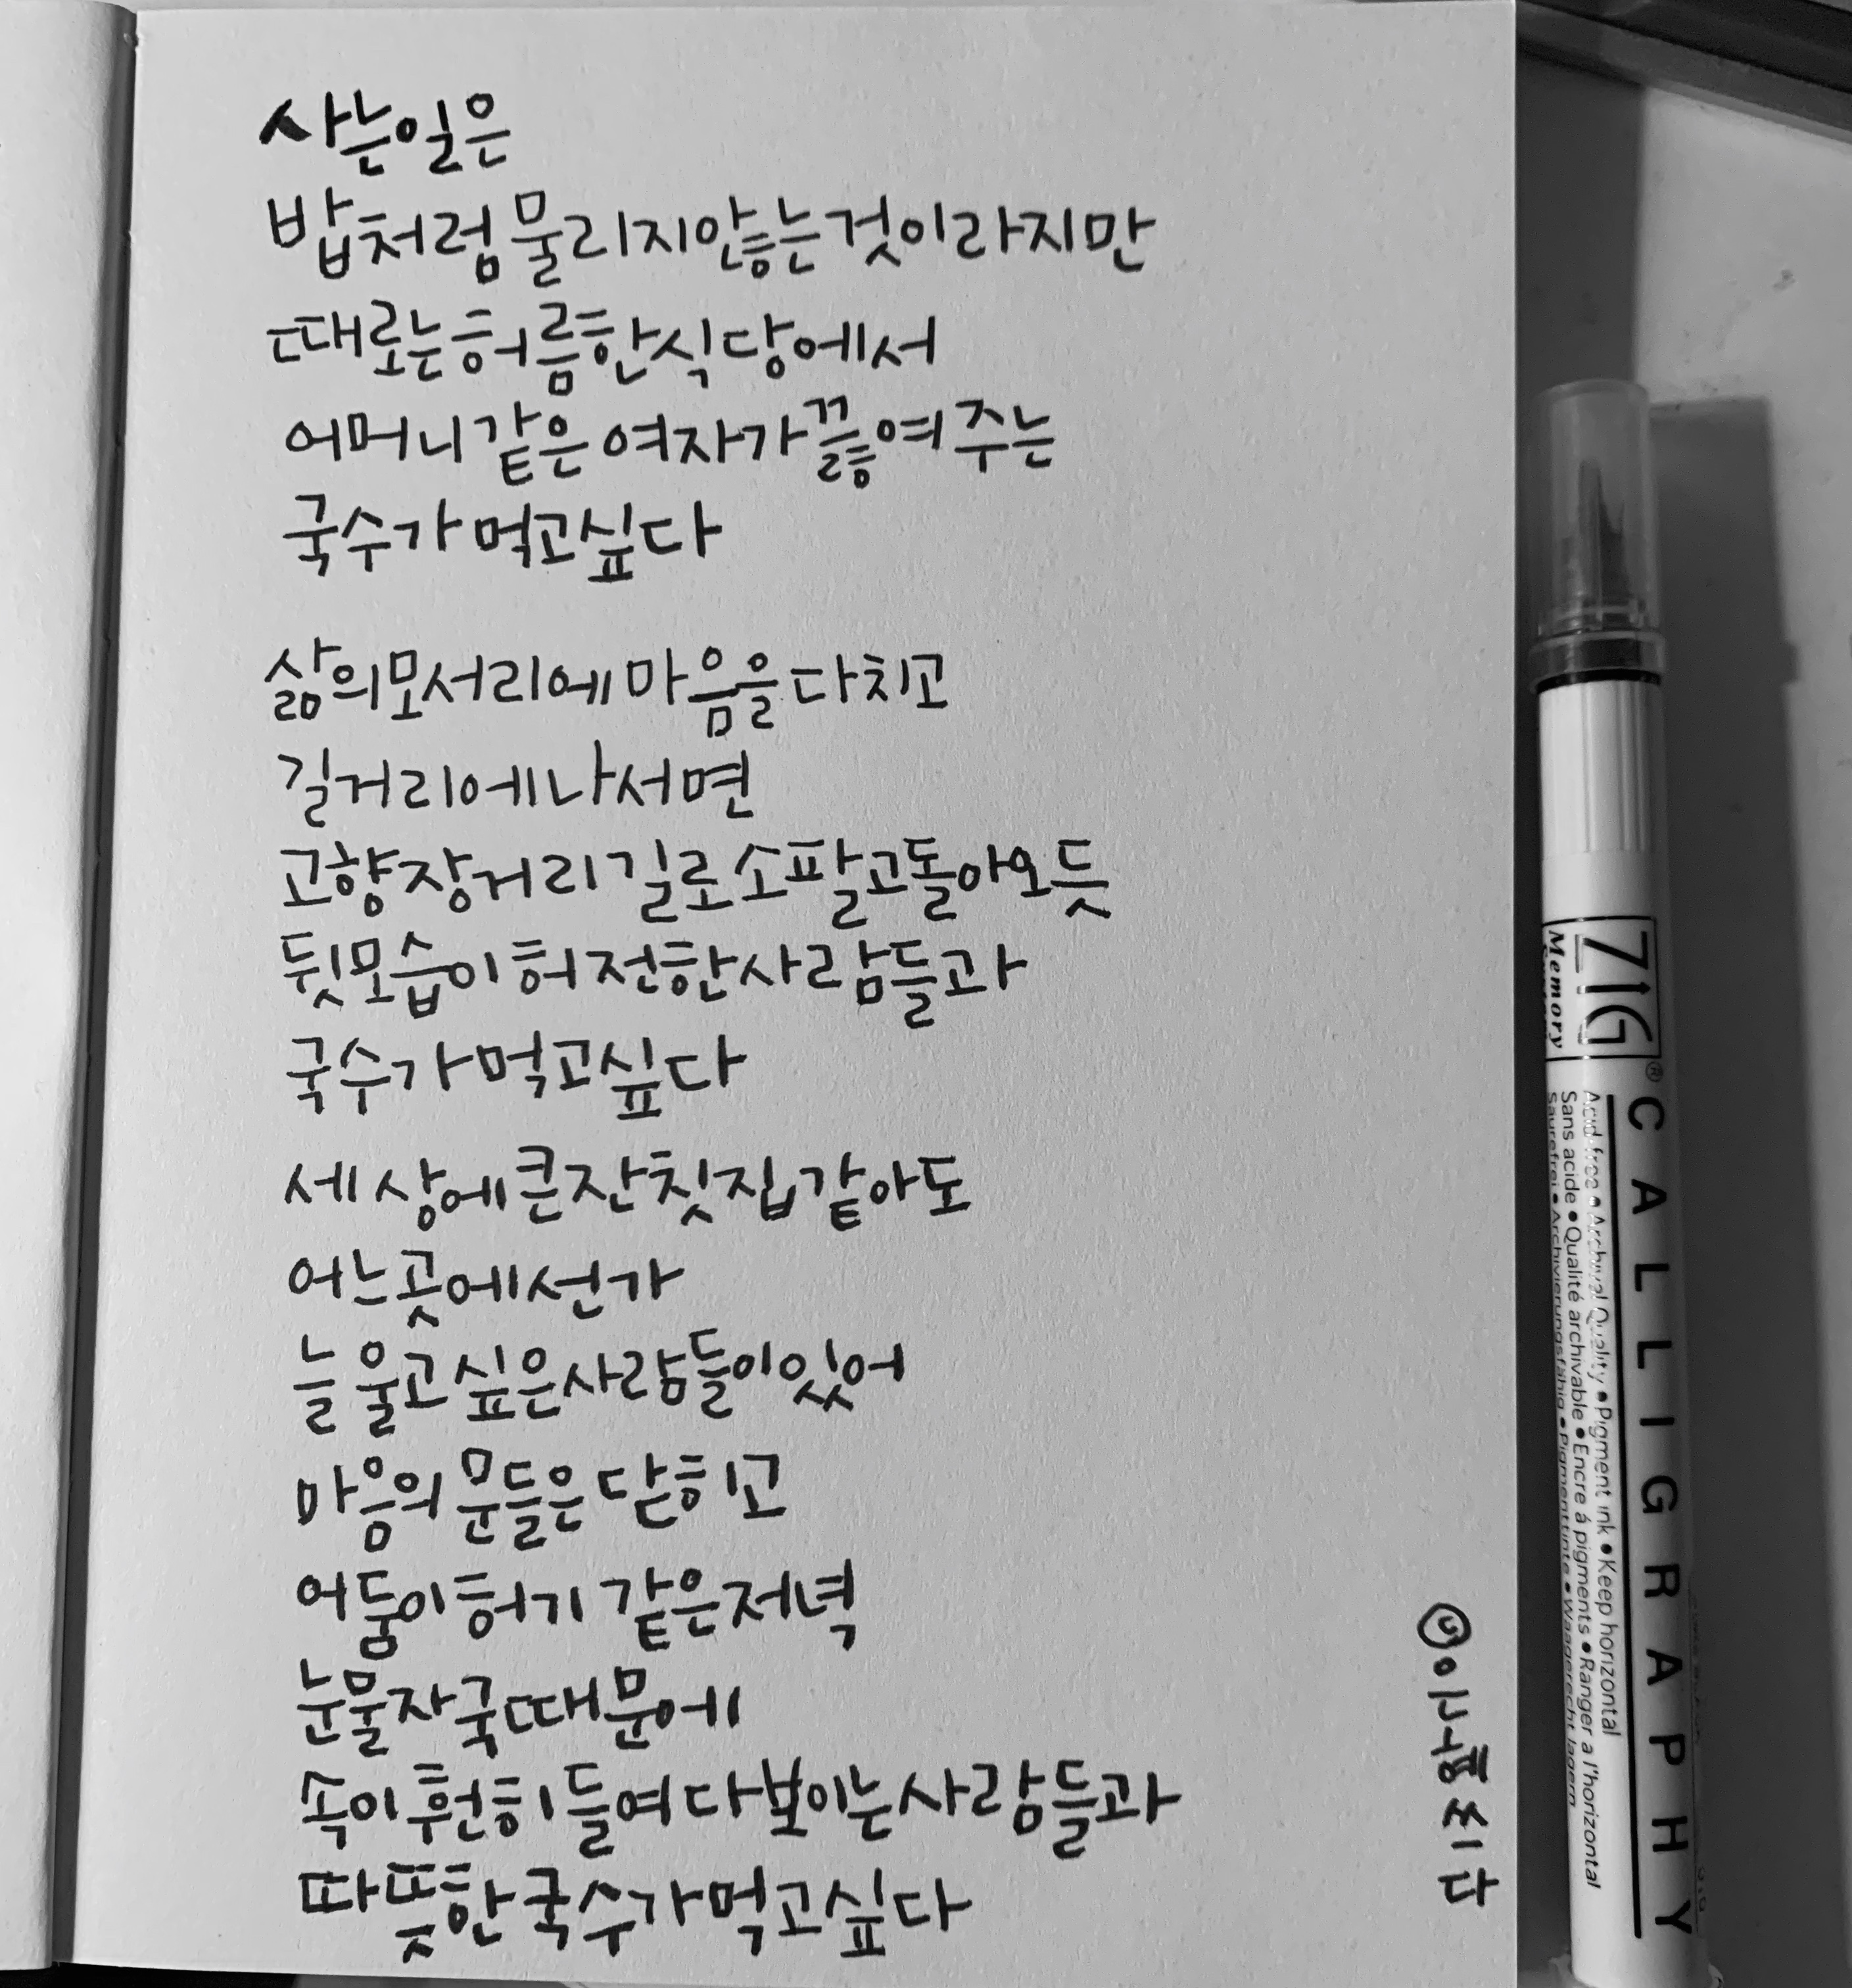 사는일은
밥처럼 물리지않는것이라지만
때로는허름한식당에서
어머니같은 여자가끓여주는
국수가 먹고싶다
삶의모서리에 마음을 다치고
길거리에나서면
고향장거리 길로 소팔고돌아오듯
뒷모습이 허전한사람들과
국수가 먹고싶다
세상에큰잔칫집같아도
어느곳에선가
늘 울고싶은사람들이있어
마음의 문들은 닫히고
어둠이허기 같은저녁
눈물자국때문에
속이훤히들여다보이는사람들과
따뜻한국수가먹고싶다
쓰다
ZIG®
Memory
CALLIGRAPHY
Acid free • Archival Quality • Pigment ink • Keep horizontal
Sans acide • Qualité archivable • Encre á pigments • Ranger a l'horizontal
Saurefrei • Archivierungsfähig • Pigmenttinte • Waagerecht lagern